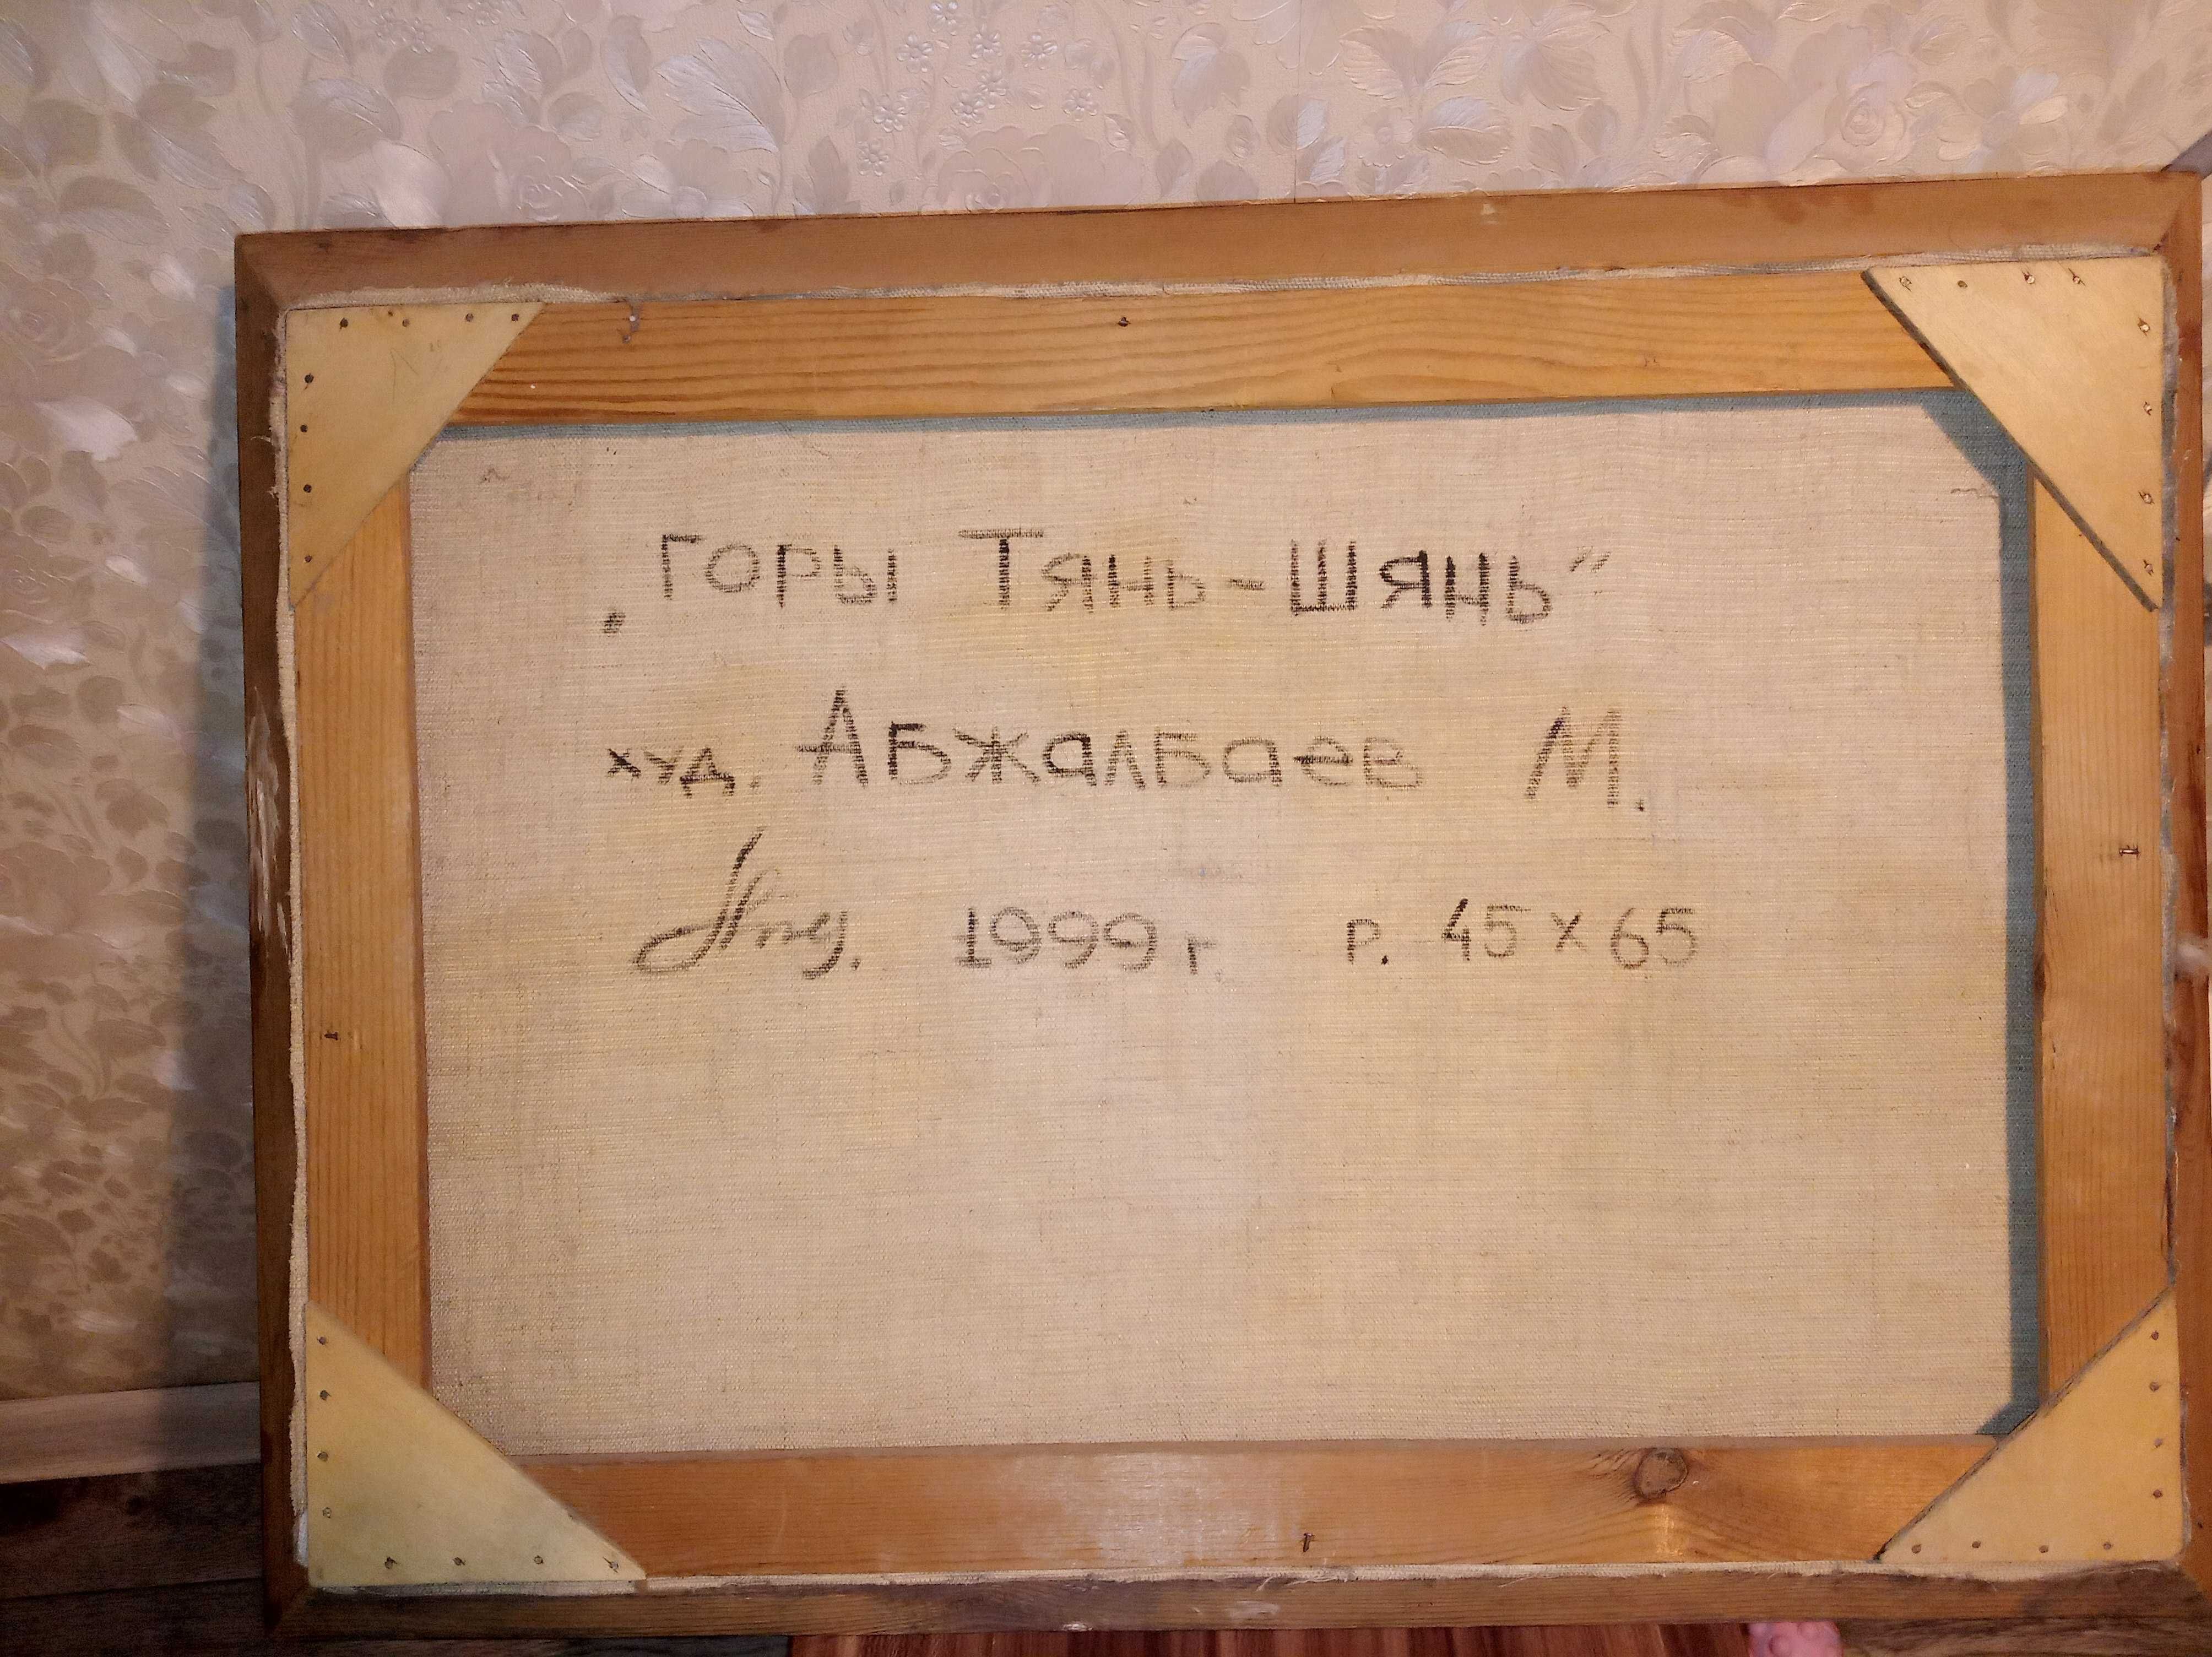 „Горы Тянь-Шянь"
худ. Абжалбаев М.
1999 г. р. 45 х 65